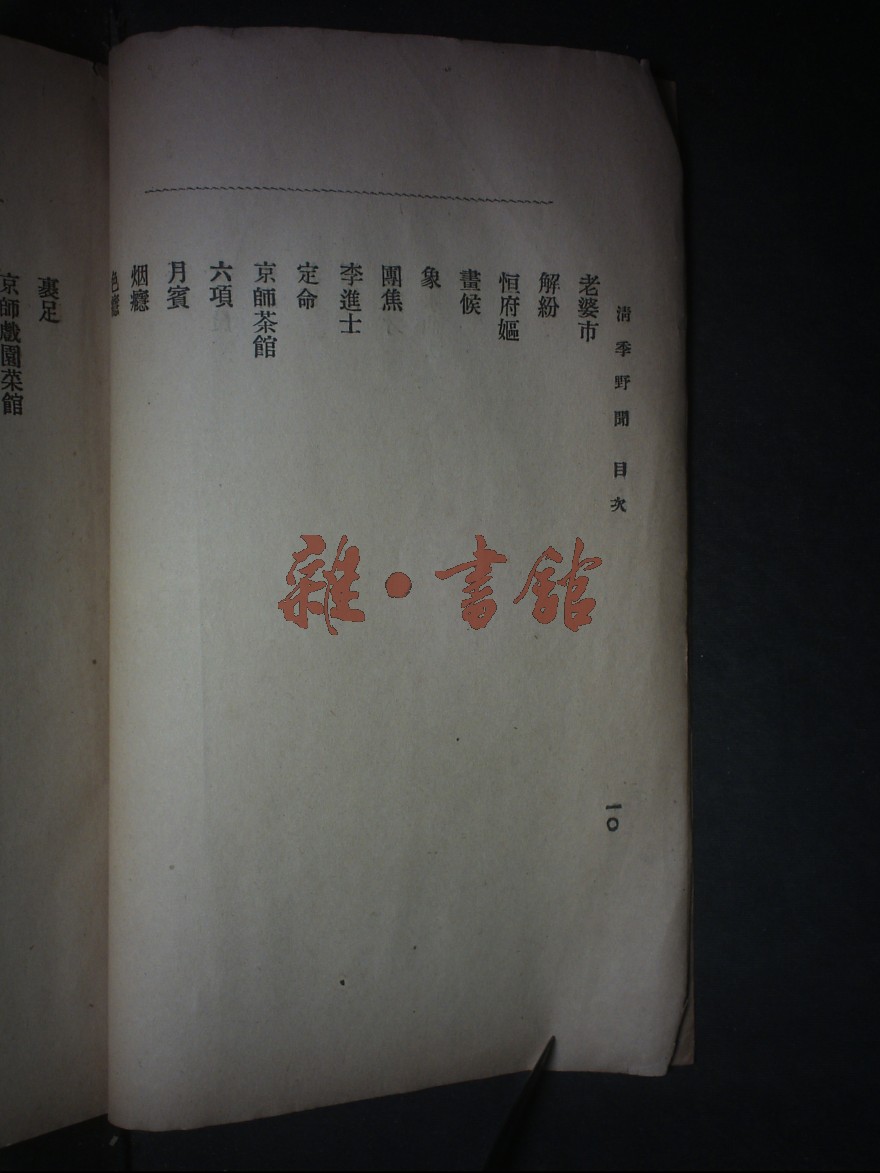 清季野聞 目次
一〇
老婆市
解紛
恒府嫗
畫候
象
團焦
李進士
定命
京師茶館
六項
月賓
烟癮
色癮
裹足
京師戲園菜館
雜•書館